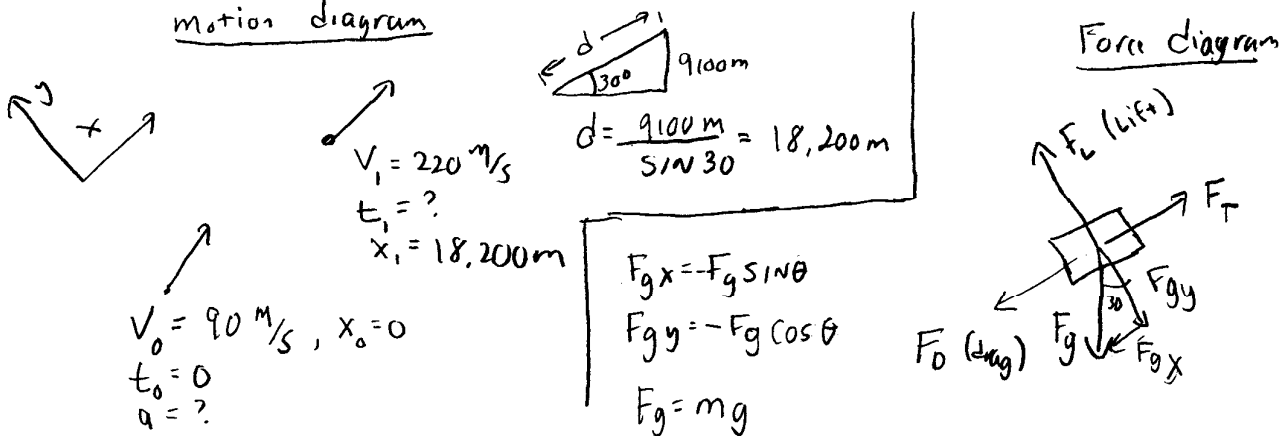 motion diagram
y
x
V₁ = 220 m/s
t₁ = ?
x₁ = 18,200m
V₀ = 90 m/s, x₀ = 0
t₀ = 0
a = ?
d
30°
9100m
d = 9100 m / SIN 30 = 18,200m
Fgx = -Fg SINθ
Fgy = -Fg COS θ
Fg = mg
Force diagram
F_L (Lift)
F_T
Fgy
30
F_D (drag)
Fg
Fgx